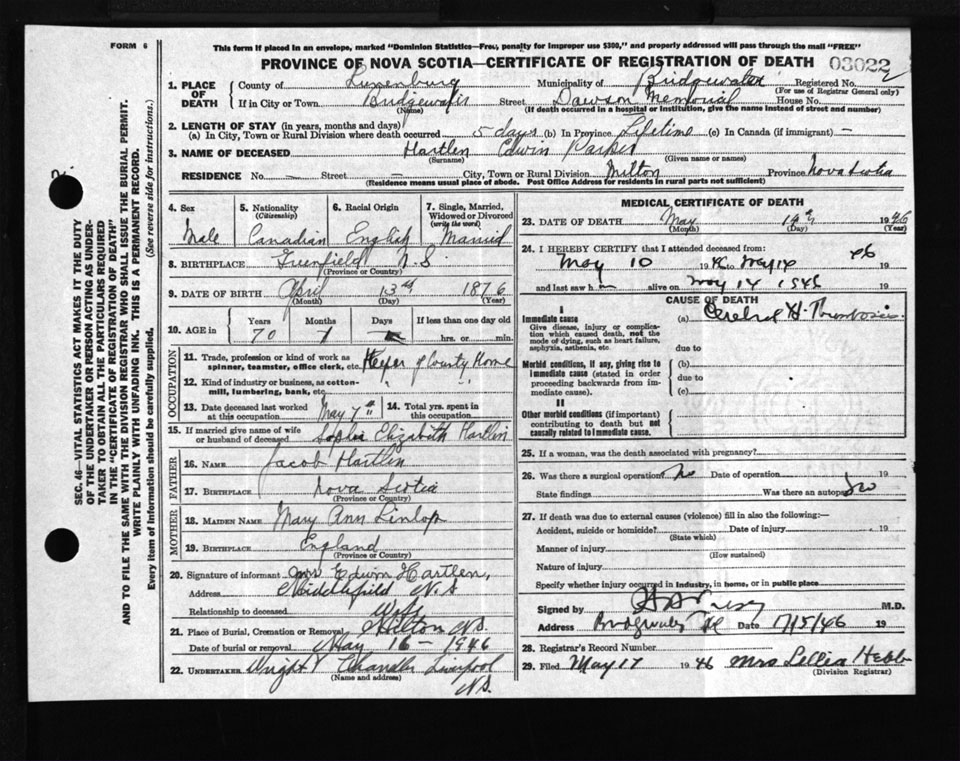 FORM 6
This form if placed in an envelope, marked "Dominion Statistics—Free, penalty for improper use $300," and properly addressed will pass through the mail "FREE"
PROVINCE OF NOVA SCOTIA—CERTIFICATE OF REGISTRATION OF DEATH
03022
1. PLACE OF DEATH
County of Lunenburg Municipality of Bridgewater Registered No.
(For use of Registrar General only)
If in City or Town Bridgewater Street Dawson Memorial House No.
(Name) (If death occurred in a hospital or Institution, give the name instead of street and number)
2. LENGTH OF STAY (in years, months and days)
(a) In City, Town or Rural Division where death occurred 5 days (b) In Province Lifetime (c) In Canada (if immigrant) —
3. NAME OF DECEASED Hartlen Edwin Parker
(Surname) (Given name or names)
RESIDENCE No. — Street — City, Town or Rural Division Milton Province Nova Scotia
(Residence means usual place of abode. Post Office Address for residents in rural parts not sufficient)
4. Sex Male
5. Nationality (Citizenship) Canadian
6. Racial Origin English
7. Single, Married, Widowed or Divorced (write the word) Married
8. BIRTHPLACE Greenfield N.S.
(Province or Country)
9. DATE OF BIRTH April 13th 1876
(Month) (Day) (Year)
10. AGE in Years Months Days If less than one day old
70 1 hrs. or min.
OCCUPATION
11. Trade, profession or kind of work as spinner, teamster, office clerk, etc. Keeper of County Home
12. Kind of industry or business, as cotton-mill, lumbering, bank, etc. " "
13. Date deceased last worked at this occupation May 7th
14. Total yrs. spent in this occupation
15. If married give name of wife or husband of deceased Sophia Elizabeth Hartlen
FATHER
16. NAME Jacob Hartlen
17. BIRTHPLACE Nova Scotia
(Province or Country)
MOTHER
18. MAIDEN NAME Mary Ann
19. BIRTHPLACE England
(Province or Country)
20. Signature of informant Mrs Edwin Hartlen,
Address Middlefield N.S
Relationship to deceased Wife
21. Place of Burial, Cremation or Removal Milton N.S.
Date of burial or removal May 16 – 1946
22. UNDERTAKER Wright & Chandler Liverpool
N.S.
(Name and address)
MEDICAL CERTIFICATE OF DEATH
23. DATE OF DEATH May 14th 1946
(Month) (Day) (Year)
24. I HEREBY CERTIFY that I attended deceased from:
May 10 1946 to May 14 46 19
and last saw him alive on May 14 1946 19
CAUSE OF DEATH
I
Immediate cause (a) Cerebral Thrombosis
Give disease, injury or complication which caused death, not the mode of dying, such as heart failure, asphyxia, asthenia, etc.
due to
Morbid conditions, if any, giving rise to immediate cause (stated in order proceeding backwards from immediate cause).
(b)
due to
(c)
II
Other morbid conditions (if important) contributing to death but not causally related to immediate cause.
25. If a woman, was the death associated with pregnancy?
26. Was there a surgical operation? No Date of operation 19
State findings Was there an autopsy? No
27. If death was due to external causes (violence) fill in also the following:—
Accident, suicide or homicide? Date of injury 19
(State which)
Manner of injury
(How sustained)
Nature of injury
Specify whether injury occurred in Industry, in home, or in public place
Signed by M.D.
Address Bridgewater Date 17/5/46 19
28. Registrar's Record Number
29. Filed May 17 1946 Mrs Lellia Hebb
(Division Registrar)
SEC. 46—VITAL STATISTICS ACT MAKES IT THE DUTY
OF THE UNDERTAKER OR PERSON ACTING AS UNDER-
TAKER TO OBTAIN ALL THE PARTICULARS REQUIRED
IN THE "CERTIFICATE OF REGISTRATION OF DEATH"
AND TO FILE THE SAME WITH THE DIVISION REGISTRAR WHO SHALL ISSUE THE BURIAL PERMIT.
WRITE PLAINLY WITH UNFADING INK. THIS IS A PERMANENT RECORD.
Every item of information should be carefully supplied. (See reverse side for instructions.)